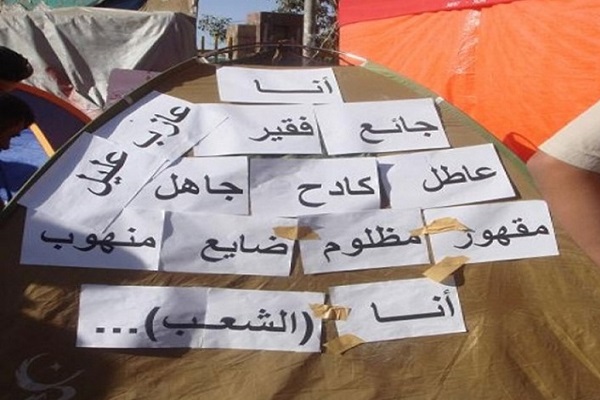 أنا
جائع فقير عازب
عاطل كادح جاهل عليل
مقهور مظلوم ضايع منهوب
أنا (الشعب)...